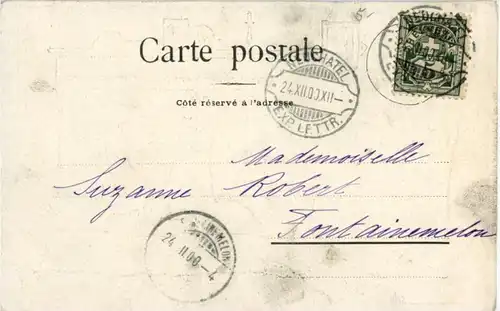 Carte postale
NEUCHATEL
24.XII.00.XII-
EXP. LETTR.
Côté réservé à l'adresse.
Mademoiselle
Suzanne Robert
Fontainemelon
24. II.00.-4